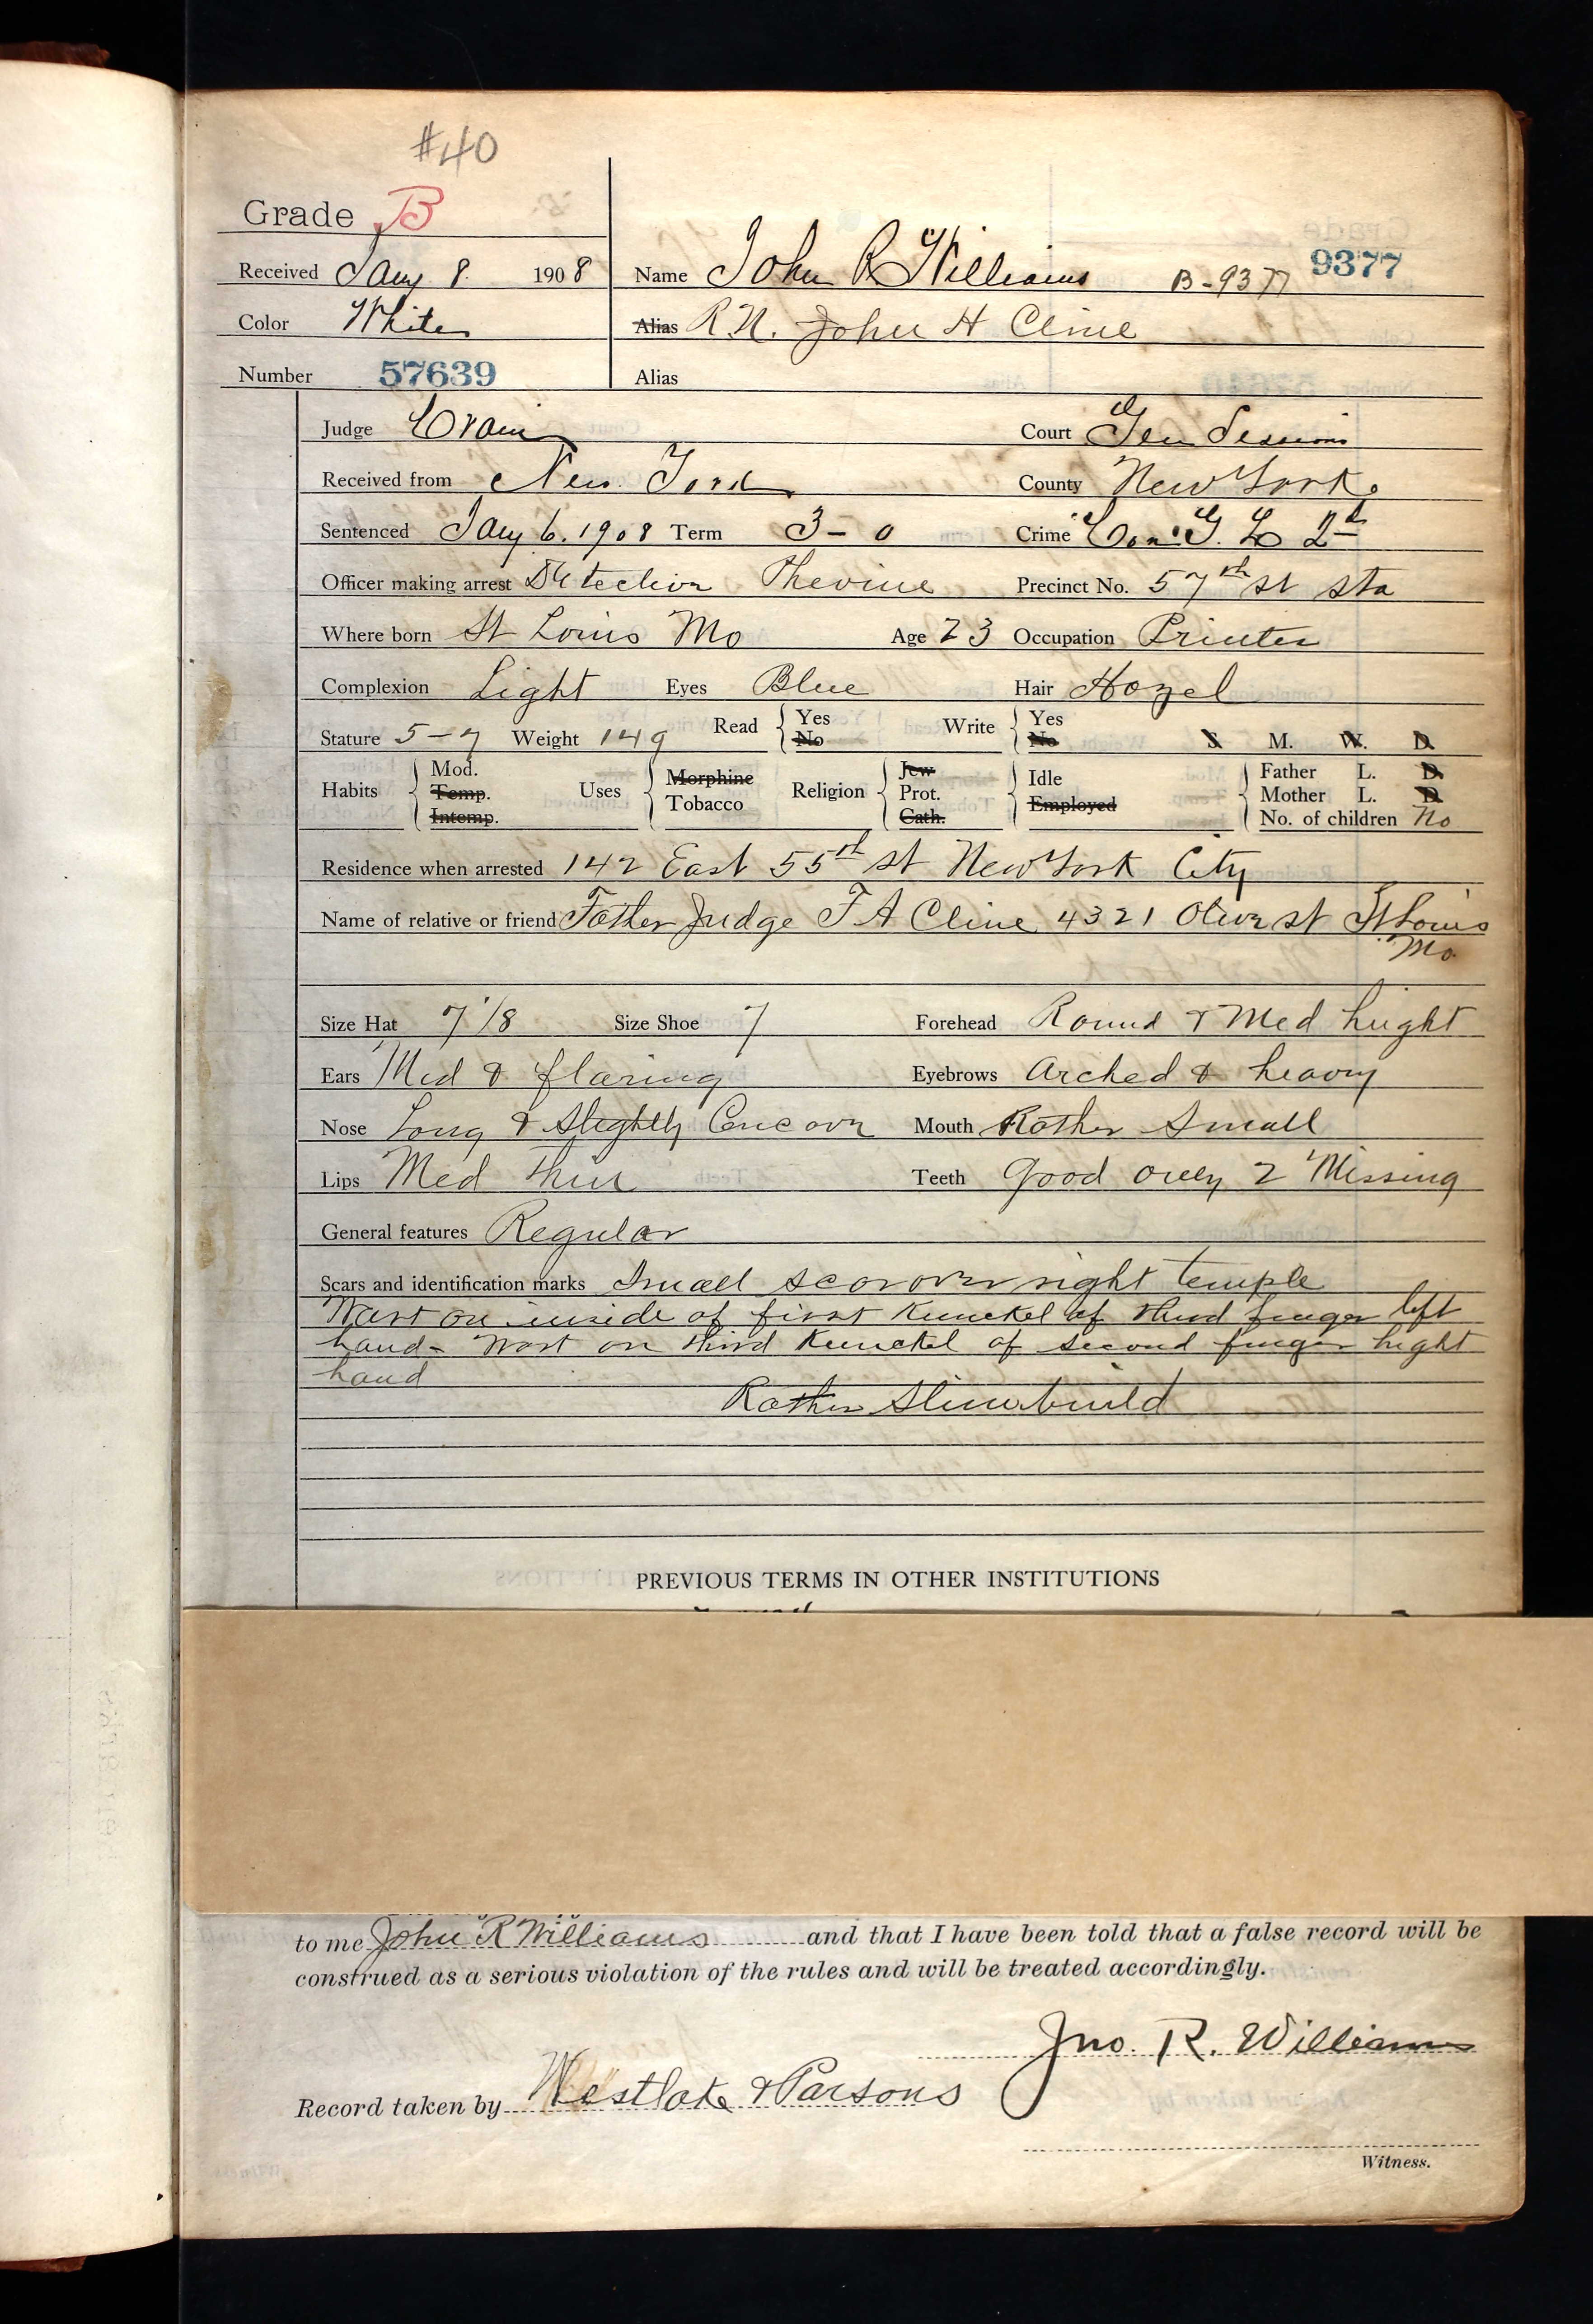 #40
Grade B
Received Jany 8. 1908 Name John R Williams B-9377 9377
Color White Alias R.N. John H Cline
Number 57639 Alias
Judge Crain Court Gen Sessions
Received from New York County New York.
Sentenced Jany 6. 1908 Term 3-0 Crime Con. G. L 2d
Officer making arrest Detective Precinct No. 57th st sta
Where born St Louis Mo Age 23 Occupation Printer
Complexion Light Eyes Blue Hair Hazel
Stature 5-7 Weight 149 Read Yes No Write Yes No S M. W. D.
Habits Mod. Temp. Intemp. Uses Morphine Tobacco Religion Jew Prot. Cath. Idle Employed Father L. D. Mother L. D. No. of children No
Residence when arrested 142 East 55th st New York City
Name of relative or friend Father Judge F A Cline 4321 Olive st St Louis
Mo.
Size Hat 7 1/8 Size Shoe 7 Forehead Round & Med height
Ears Med & flaring Eyebrows Arched & heavy
Nose Long & Slightly Concave Mouth Rather Small
Lips Med Thin Teeth Good only 2 Missing
General features Regular
Scars and identification marks Small scar over right temple
Wart on inside of first Knuckel of third finger left
hand - Wart on third Knuckel of second finger right
hand
Rather Slim build
PREVIOUS TERMS IN OTHER INSTITUTIONS
to me John R Williams and that I have been told that a false record will be
construed as a serious violation of the rules and will be treated accordingly.
Jno. R. Williams
Record taken by Westlake & Parsons
Witness.